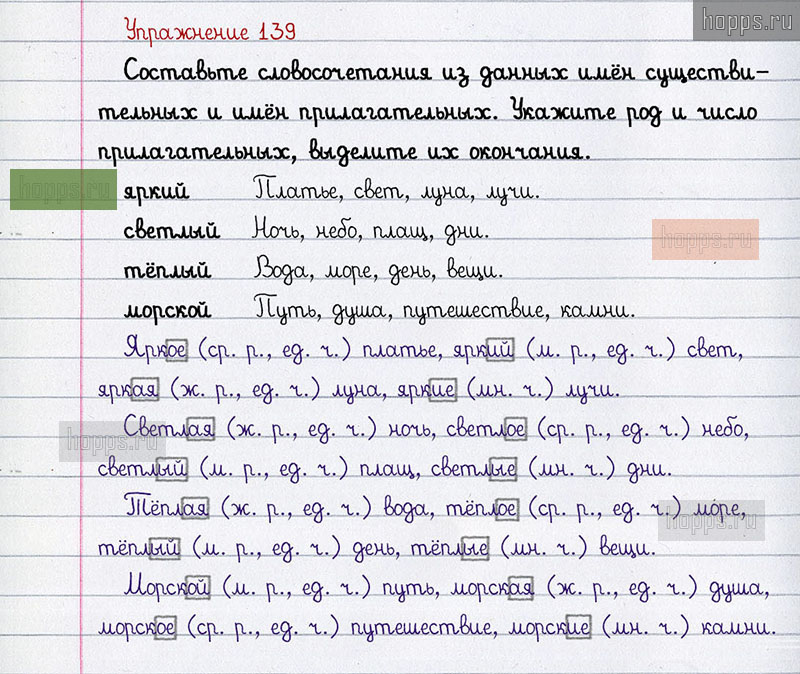 hopps.ru
Упражнение 139
Составьте словосочетания из данных имён существи-
тельных и имён прилагательных. Укажите род и число
прилагательных, выделите их окончания.
hopps.ru
яркий Платье, свет, луна, лучи.
светлый Ночь, небо, плащ, дни.
hopps.ru
тёплый Вода, море, день, вещи.
морской Путь, душа, путешествие, камни.
Яркое (ср. р., ед. ч.) платье, яркий (м. р., ед. ч.) свет,
яркая (ж. р., ед. ч.) луна, яркие (мн. ч.) лучи.
Светлая (ж. р., ед. ч.) ночь, светлое (ср. р., ед. ч.) небо,
hopps.ru
светлый (м. р., ед. ч.) плащ, светлые (мн. ч.) дни.
Тёплая (ж. р., ед. ч.) вода, тёплое (ср. р., ед. ч.) море,
hopps.ru
тёплый (м. р., ед. ч.) день, тёплые (мн. ч.) вещи.
Морской (м. р., ед. ч.) путь, морская (ж. р., ед. ч.) душа,
морское (ср. р., ед. ч.) путешествие, морские (мн. ч.) камни.